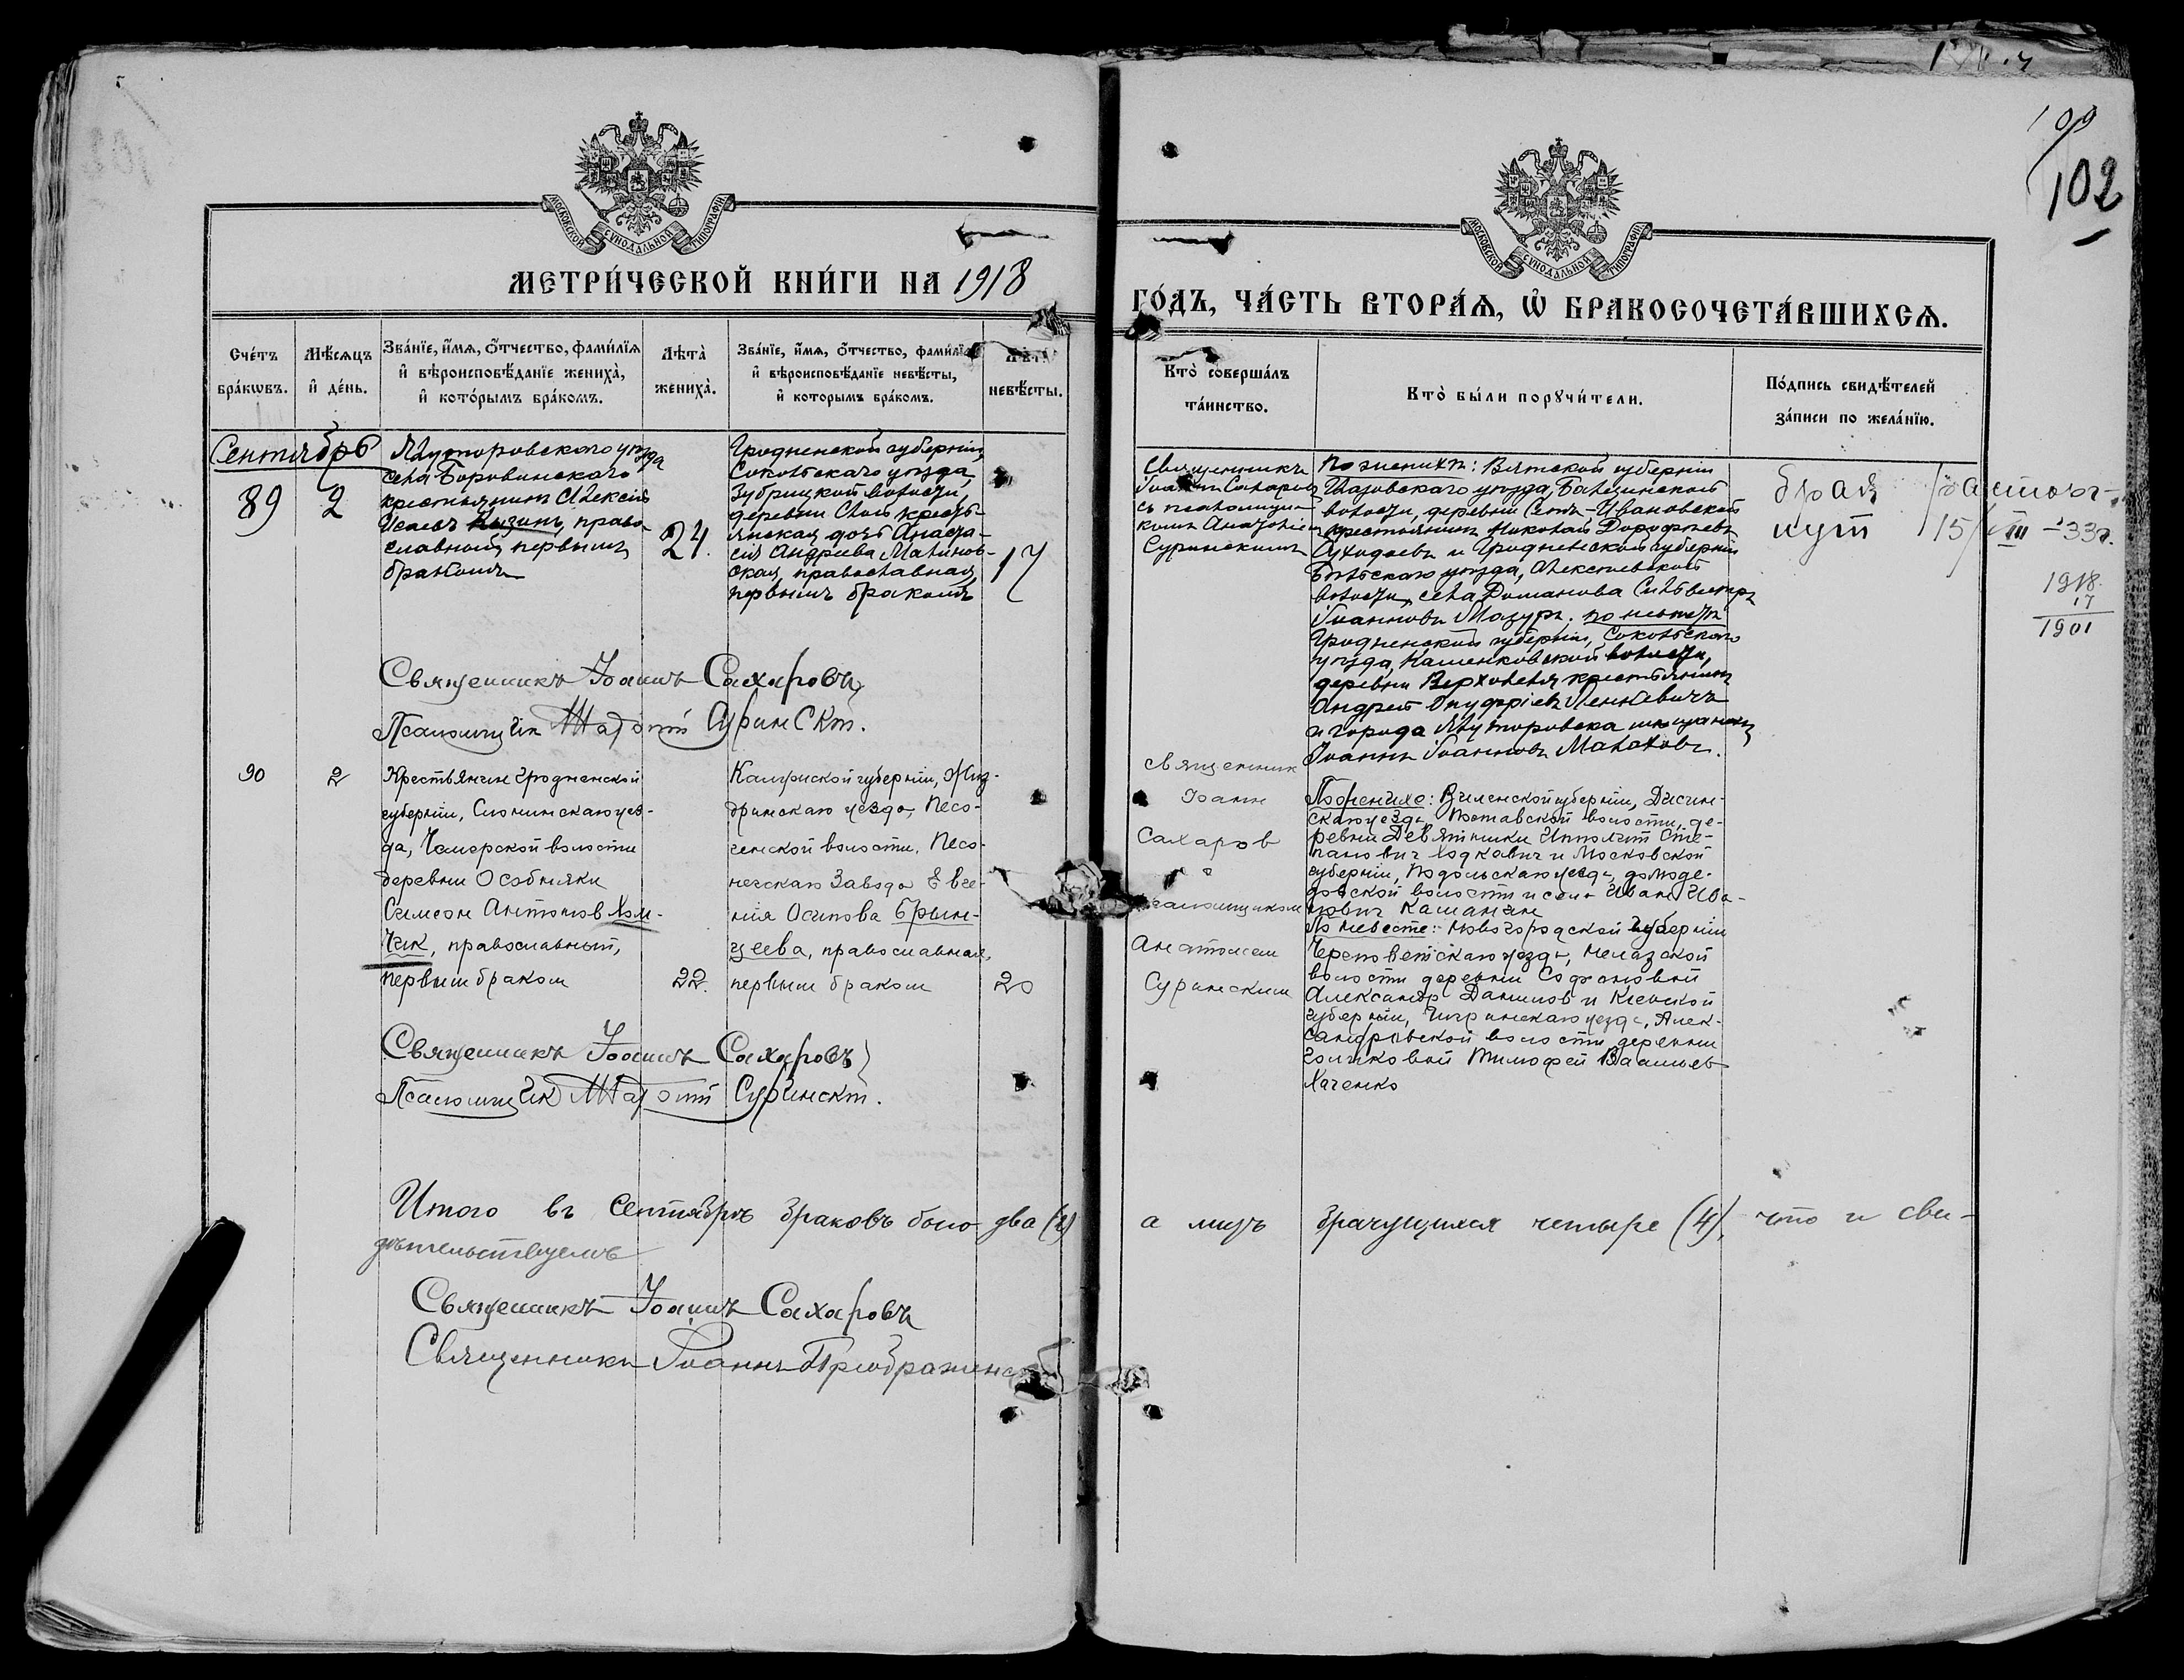 109
102
МОСКОВСКОЙ СѴНОДАЛЬНОЙ ТИПОГРАФІИ
МОСКОВСКОЙ СѴНОДАЛЬНОЙ ТИПОГРАФІИ
МЕТРИ́ЧЕСКОЙ КНИ́ГИ НА 1918
ГО́ДЪ, ЧА́СТЬ ВТОРА́Ѧ, Ѡ҆ БРАКОСОЧЕТА́ВШИХСѦ.
Сче́тъ бра́кѡвъ.
Мѣ́сѧцъ и҆ де́нь.
Зва́нїе, и҆́мѧ, ѻ҆́тчество, фами́лїѧ
и҆ вѣроисповѣ́данїе жениха̀,
и҆ кото́рымъ бра́комъ.
Лѣта̀ жениха̀.
Зва́нїе, и҆́мѧ, ѻ҆́тчество, фами́лїѧ
и҆ вѣроисповѣ́данїе невѣ́сты,
и҆ которымъ бра́комъ.
Лѣта̀ невѣ́сты.
Кто̀ соверша́лъ
та́инство.
Кто̀ бы́ли порꙋчи́тели.
По́дпись свидѣ́телей
за́писи по жела́нїю.
Сентябрь
89
2
Ялуторовского уезда
села Боровинскаго
крестьянинъ Алексій
Исаевъ Кызинъ, право-
славный, первымъ
бракомъ
24.
Гродненской губерніи,
Сокольскаго уѣзда,
Зубрицкой волости,
деревни Слои кресть-
янская дочь Анаста-
сія Андреева Малинов-
ская, православная,
первымъ бракомъ
17
Священникъ
Іоаннъ Сахаровъ
съ псаломщи-
комъ Анатоліемъ
Суринскимъ
По женихѣ: Вятской губерніи
Глазовскаго уѣзда, Балезинской
волости, деревни Сетъ-Ивановской
крестьянинъ Николай Дорофеевъ
Суходоевъ и Гродненской губерніи
Бѣльскаго уѣзда, Алексѣевской
волости, села Романова Сильвестръ
Іоанновъ Мазуръ. по невѣстѣ
Гродненской губерніи, Сокольскаго
уѣзда, Каменковской волости,
деревни Верхолеся крестьянинъ
Андрей Онуфріевъ Ленкевичъ
и города Ялуторовска мѣщанинъ
Іоаннъ Іоанновъ Малаховъ.
брак расторг-
нут 15/VIII-33г.
1918
17
1901
Священникъ Іоаннъ Сахаровъ
Псаломщик Анатолій Суринскій.
90
2
Крестьянин Гродненской
губернии, Слонимскаго уез-
да, Чемерской волости
деревни Особняки
Симеон Антонов Хом-
чик, православный,
первым браком
22.
Калужской губернии, Жиз-
дринскаго уезда, Песо-
ченской волости, Песо-
ченскаго Завода Евге-
ния Осипова Брын-
цеева, православная,
первым браком
20
священник
Иоанн
Сахаров
с
псаломщиком
Анатолием
Суринским
По женихе: Виленской губернии, Дисин-
скаго уезда, Поставской волости, де-
ревни Девятники Ипполит Сте-
панович Ходкавич и Московской
губернии, Подольскаго уезда, домоде-
довской волости и села Иван Ива-
нович Каманин
По невесте: Новгородской губернии
Череповетскаго уезда, Мелазской
волости деревни Софоновой
Александр Данилов и Киевской
губернии, Чигринскаго уезда, Алек-
сандровской волости деревни
Голиковой Тимофей Васильев
Хаченко
Священникъ Іоаннъ Сахаровъ
Псаломщик Анатолій Суринскій.
Итого въ Сентябрѣ браковъ было два (2) а лицъ брачущихся четыре (4), что и сви-
дѣтельствуемъ
Священникъ Іоаннъ Сахаровъ
Священникъ Іоаннъ Преображенс